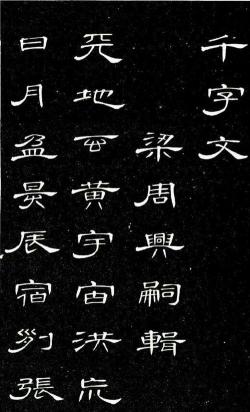 千字文
梁周興嗣輯
天地玄黃宇宙洪巟
日月盈昃辰宿列張